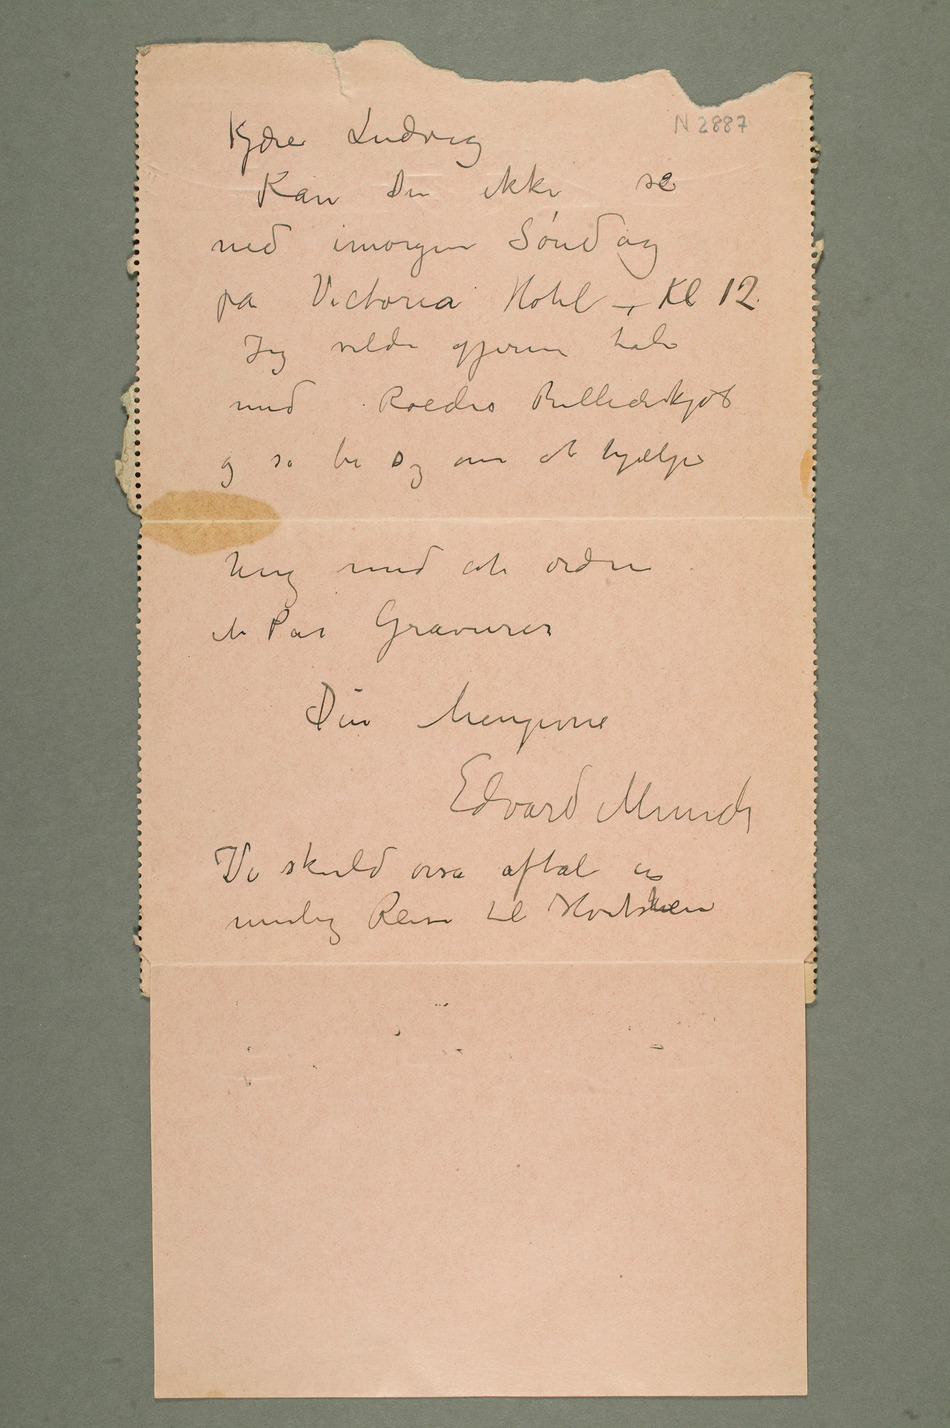 N 2887
Kjære Ludvig
Kan Du ikke se
ned imorgen Søndag
på Victoria Hotel –, Kl 12.
Jeg vilde gjerne tale
med Roedes Billedkjøb
og så be Dig om at hjælpe
mig med at ordne
et Par Gravurer
Din hengivne
Edvard Munch
Vi skuld også aftal en
mulig Reise til Hvitsten